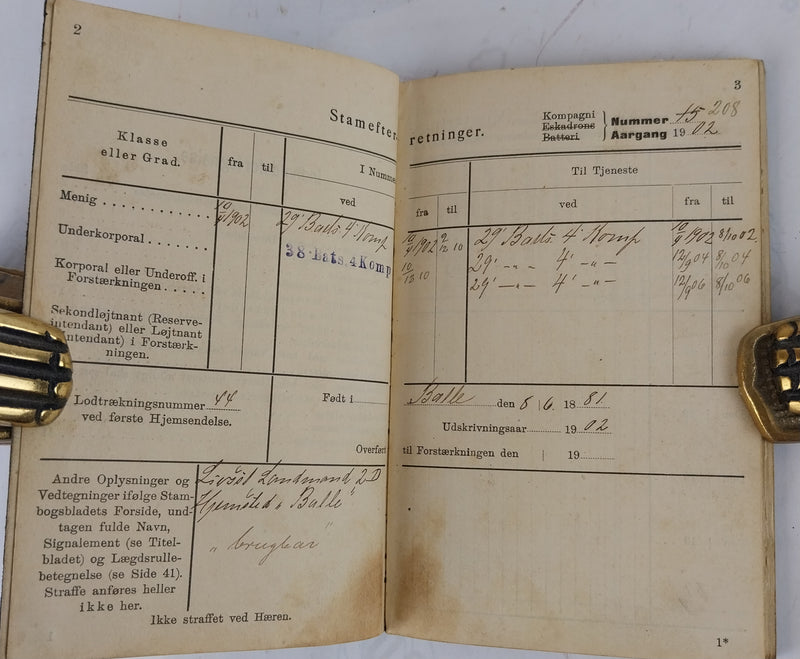 2
Stamefter-
Klasse
eller Grad.
fra
til
I Numme
ved
Menig
10/4 1902
29' Batls 4' Komp
Underkorporal
38. Bats. 4 Komp
Korporal eller Underoff. i
Forstærkningen
Sekondløjtnant (Reserve-
intendant) eller Løjtnant
intendant) i Forstærk-
ningen.
Lodtrækningsnummer 44
ved første Hjemsendelse.
Født i
Overført
Andre Oplysninger og
Vedtegninger ifølge Stam-
bogsbladets Forside, und-
tagen fulde Navn,
Signalement (se Titel-
bladet) og Lægdsrulle-
betegnelse (se Side 41).
Straffe anføres heller
ikke her.
Landmand 2 D
Hjemsted „ Balle "
„ brugbar "
Ikke straffet ved Hæren.
3
retninger.
Kompagni
Eskadrons
Batteri
Nummer 15 208
Aargang 19 02
Til Tjeneste
fra
til
ved
fra
til
10/4 1902 9/12 10 29' Batls. 4' Komp 10/4 1902 8/10 02.
10/12 10 29' — „ — 4' — „ — 12/9 04 8/10 04
29' — „ — 4' — „ — 12/9 06 8/10 06
Balle den 8 / 6. 18 81.
Udskrivningsaar 19 02
til Forstærkningen den / 19
1*